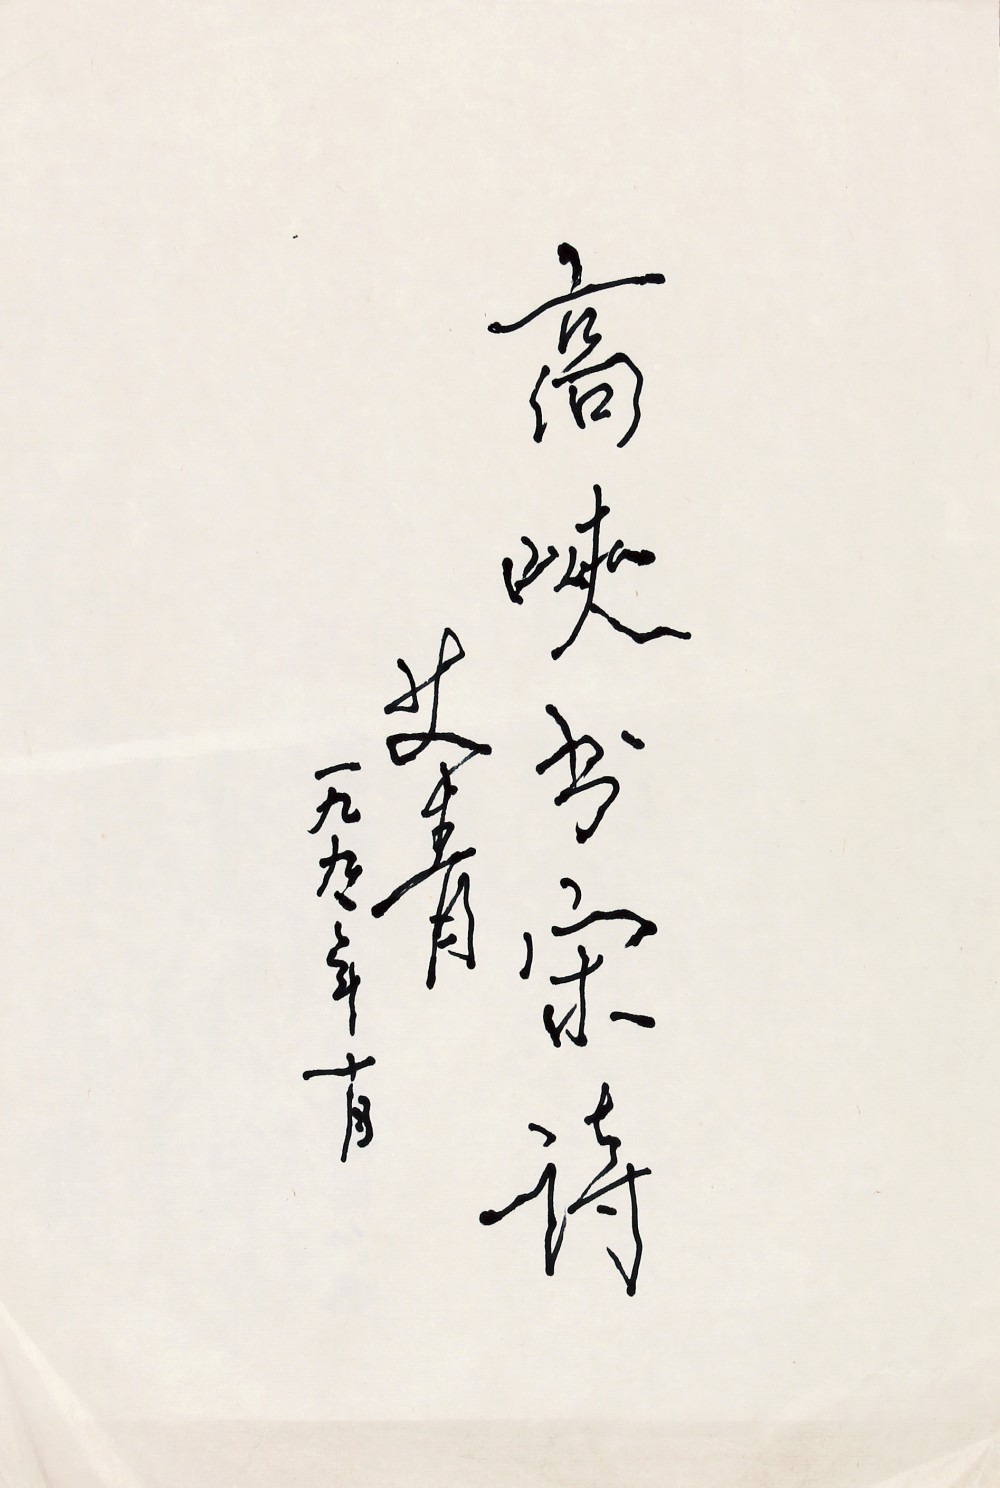 高峡书宋诗
艾青
一九九〇年十月